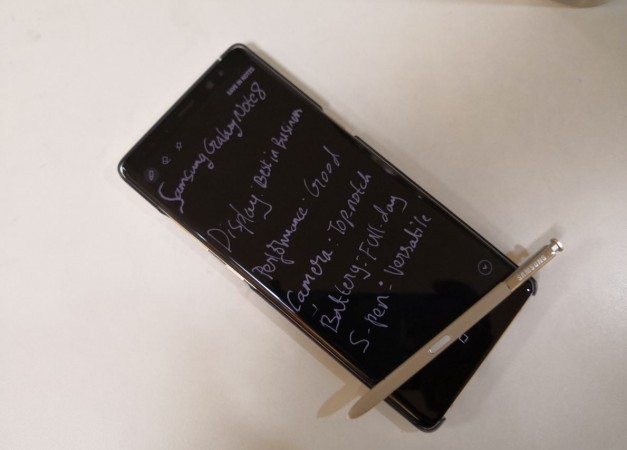 SAVE IN NOTES
Samsung Galaxy Note8
Display: Best in Business
Performance: Good
Camera: Top-notch
Battery: Full-day
S-pen: Versatile
SAMSUNG